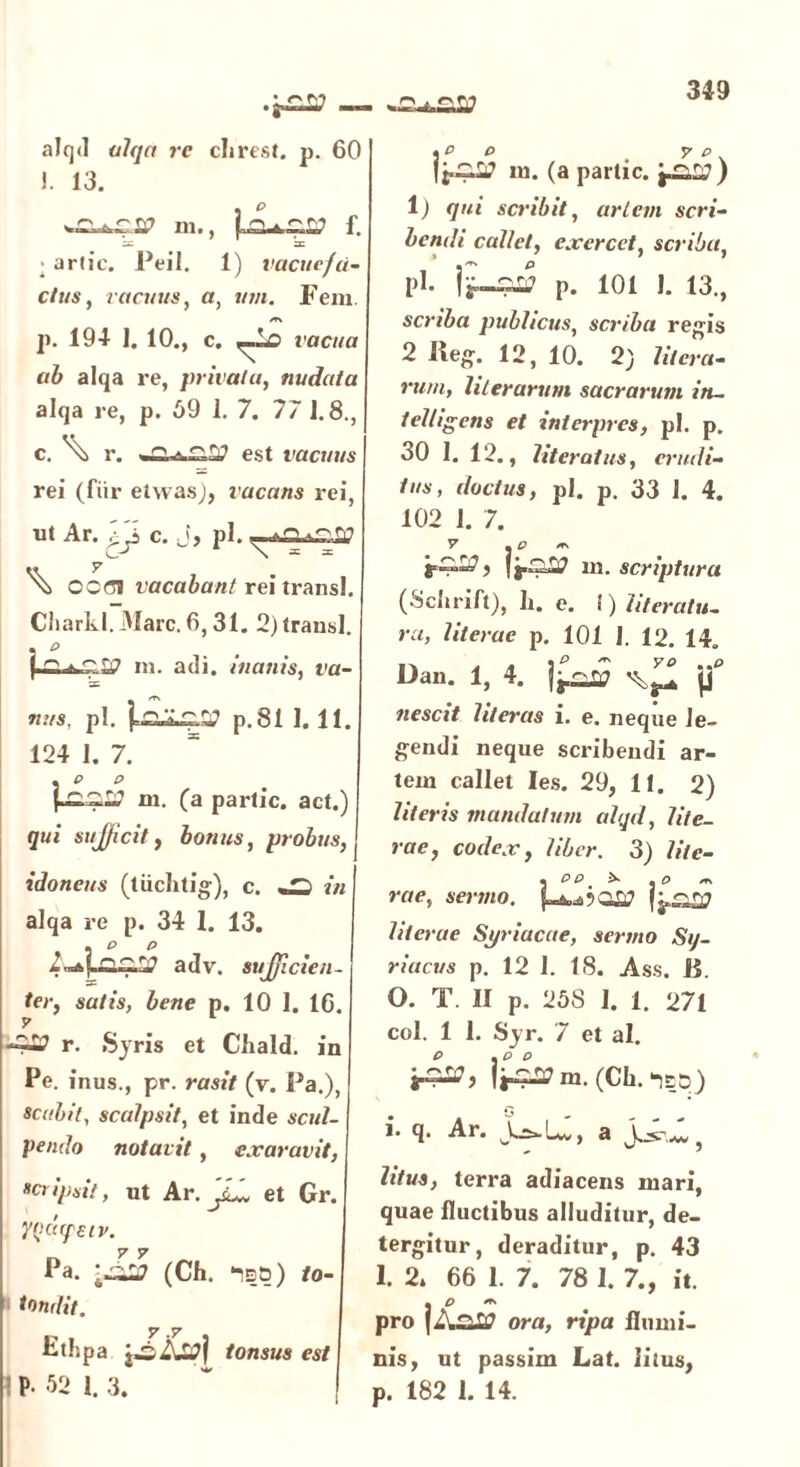 ܣܦܪ. — ܣܦܝܩ 349
alqd alqa re chrest. p. 60
l. 13.
ܣܦܝܩ m., ܣܦܝܩܐ f.
artic. Peil. 1) vacuefa-
ctus, vacuus, a, um. Fem.
p. 194 l. 10., c. ܡܢ vacua
ab alqa re, privata, nudata
alqa re, p. 59 l. 7. 77 l. 8.,
c. ܠ r. ܣܦܝܩ est vacuus
rei (für etwas), vacans rei,
ut Ar. فرغ c. ل, pl. ܣܦܝܩܝܢ
ܠ ܗܘܘ vacabant rei transl.
Charkl. Marc. 6, 31. 2) transl.
ܣܦܝܩܐ m. adi. inanis, va-
nus, pl. ܣܦܝܩܐ p. 81 l. 11.
124 l. 7.
ܣܦܩܐ m. (a partic. act.)
qui sufficit, bonus, probus,
idoneus (tüchtig), c. ܒ in
alqa re p. 34 l. 13.
ܣܦܩܐܝܬ adv. sufficien-
ter, satis, bene p. 10 l. 16.
ܣܦܪ r. Syris et Chald. in
Pe. inus., pr. rasit (v. Pa.),
scabit, scalpsit, et inde scul-
pendo notavit, exaravit,
scripsit, ut Ar. سفر et Gr.
γράφειν.
Pa. ܣܦܪ (Ch. ספר) to-
tondit.
Ethpa ܐܣܬܦܪ tonsus est
p. 52 l. 3.
ܣܦܪܐ m. (a partic. ܣܦܪ)
1) qui scribit, artem scri-
bendi callet, exercet, scriba,
pl. ܣܦܪܐ p. 101 l. 13.,
scriba publicus, scriba regis
2 Reg. 12, 10. 2) litera-
rum, literarum sacrarum in-
telligens et interpres, pl. p.
30 l. 12., literatus, erudi-
tus, doctus, pl. p. 33 l. 4.
102 l. 7.
ܣܦܪ, ܣܦܪܐ m. scriptura
(Schrift), h. e. 1) literatu-
ra, literae p. 101 l. 12. 14.
Dan. 1, 4. ܠܐ ܝܕܥ ܣܦܪܐ
nescit literas i. e. neque le-
gendi neque scribendi ar-
tem callet Ies. 29, 11. 2)
literis mandatum alqd, lite-
rae, codex, liber. 3) lite-
rae, sermo. ܣܦܪܐ ܣܘܪܝܝܐ
literae Syriacae, sermo Sy-
riacus p. 12 l. 18. Ass. B.
O. T. II p. 258 l. 1. 271
col. 1 l. Syr. 7 et al.
ܣܦܪ, ܣܦܪܐ m. (Ch. ספר)
i. q. Ar. ساحل, a سحل,
litus, terra adiacens mari,
quae fluctibus alluditur, de-
tergitur, deraditur, p. 43
l. 2. 66 l. 7. 78 l. 7., it.
pro ܣܦܬܐ ora, ripa flumi-
nis, ut passim Lat. litus,
p. 182 l. 14.